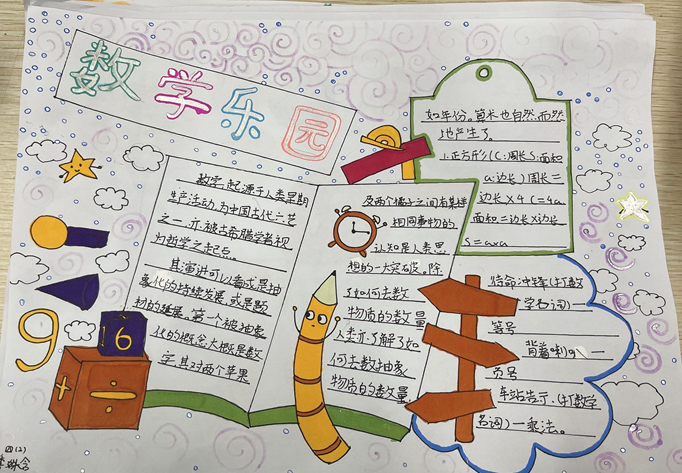 数学乐园
数学,起源于人类早期
生产活动,为中国古代六艺
之一,亦被古希腊学者视
为哲学之起点。
其演讲可以看成是抽
象化的持续发展,或是题
材的延展。第一个被抽象
化的概念大概是数
字,其对两个苹果
及两个橘子之间有某样
相同事物的
认知是人类思
想的一大突破。除
了如何去数
物质的数量,
人类亦了解了如
何去数抽象
物质的数量,
如年份。算术也自然而然
地产生了。
1.正方形(C:周长S:面积
a:边长)周长=
边长×4 C=4a
面积=边长×边长
S=a×a
待命冲锋(打数
学名词)—
等号
背着喇叭—
负号
车站告示(打数学
名词)—乘法。
9
16
+
四(2)